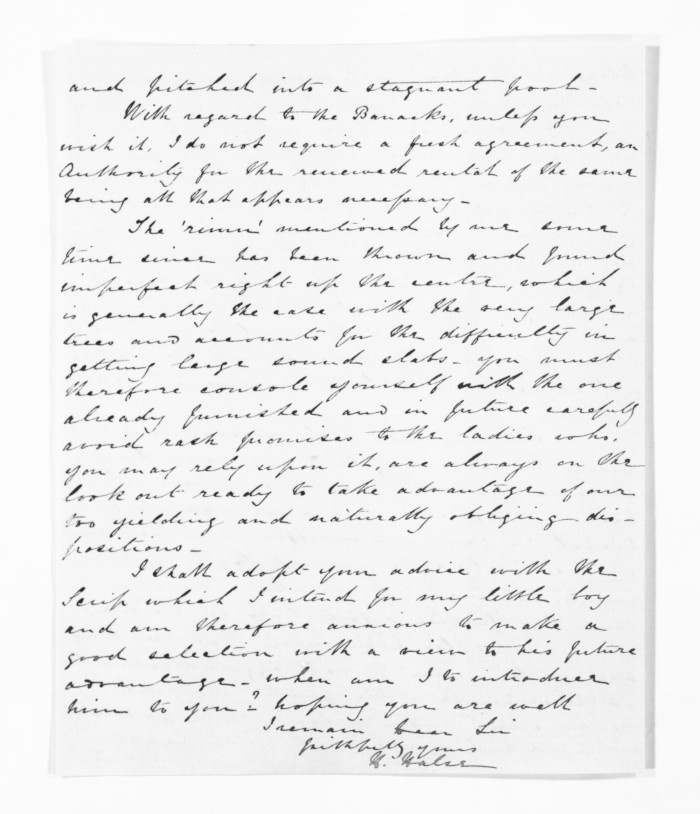 and pitched into a stagnant pool -
With regard to the Barracks, unless you
wish it, I do not require a fresh agreement, an
Authority for the renewed rental of the same
being all that appears necessary -
The 'rimu' mentioned by me some
time since has been thrown and found
imperfect right up the centre, which
is generally the case with the very large
trees and accounts for the difficulty in
getting large sound slabs - you must
therefore console yourself with the one
already furnished and in future carefully
avoid rash promises to the ladies who,
you may rely upon it, are always on the
look out ready to take advantage of our
too yielding and naturally obliging dis-
positions -
I shall adopt your advice with the
Scrip which I intend for my little boy
and am therefore anxious to make a
good selection with a view to his future
advantage - when am I to introduce
him to you? hoping you are well
I remain Dear Sir
faithfully yours
H. Halse